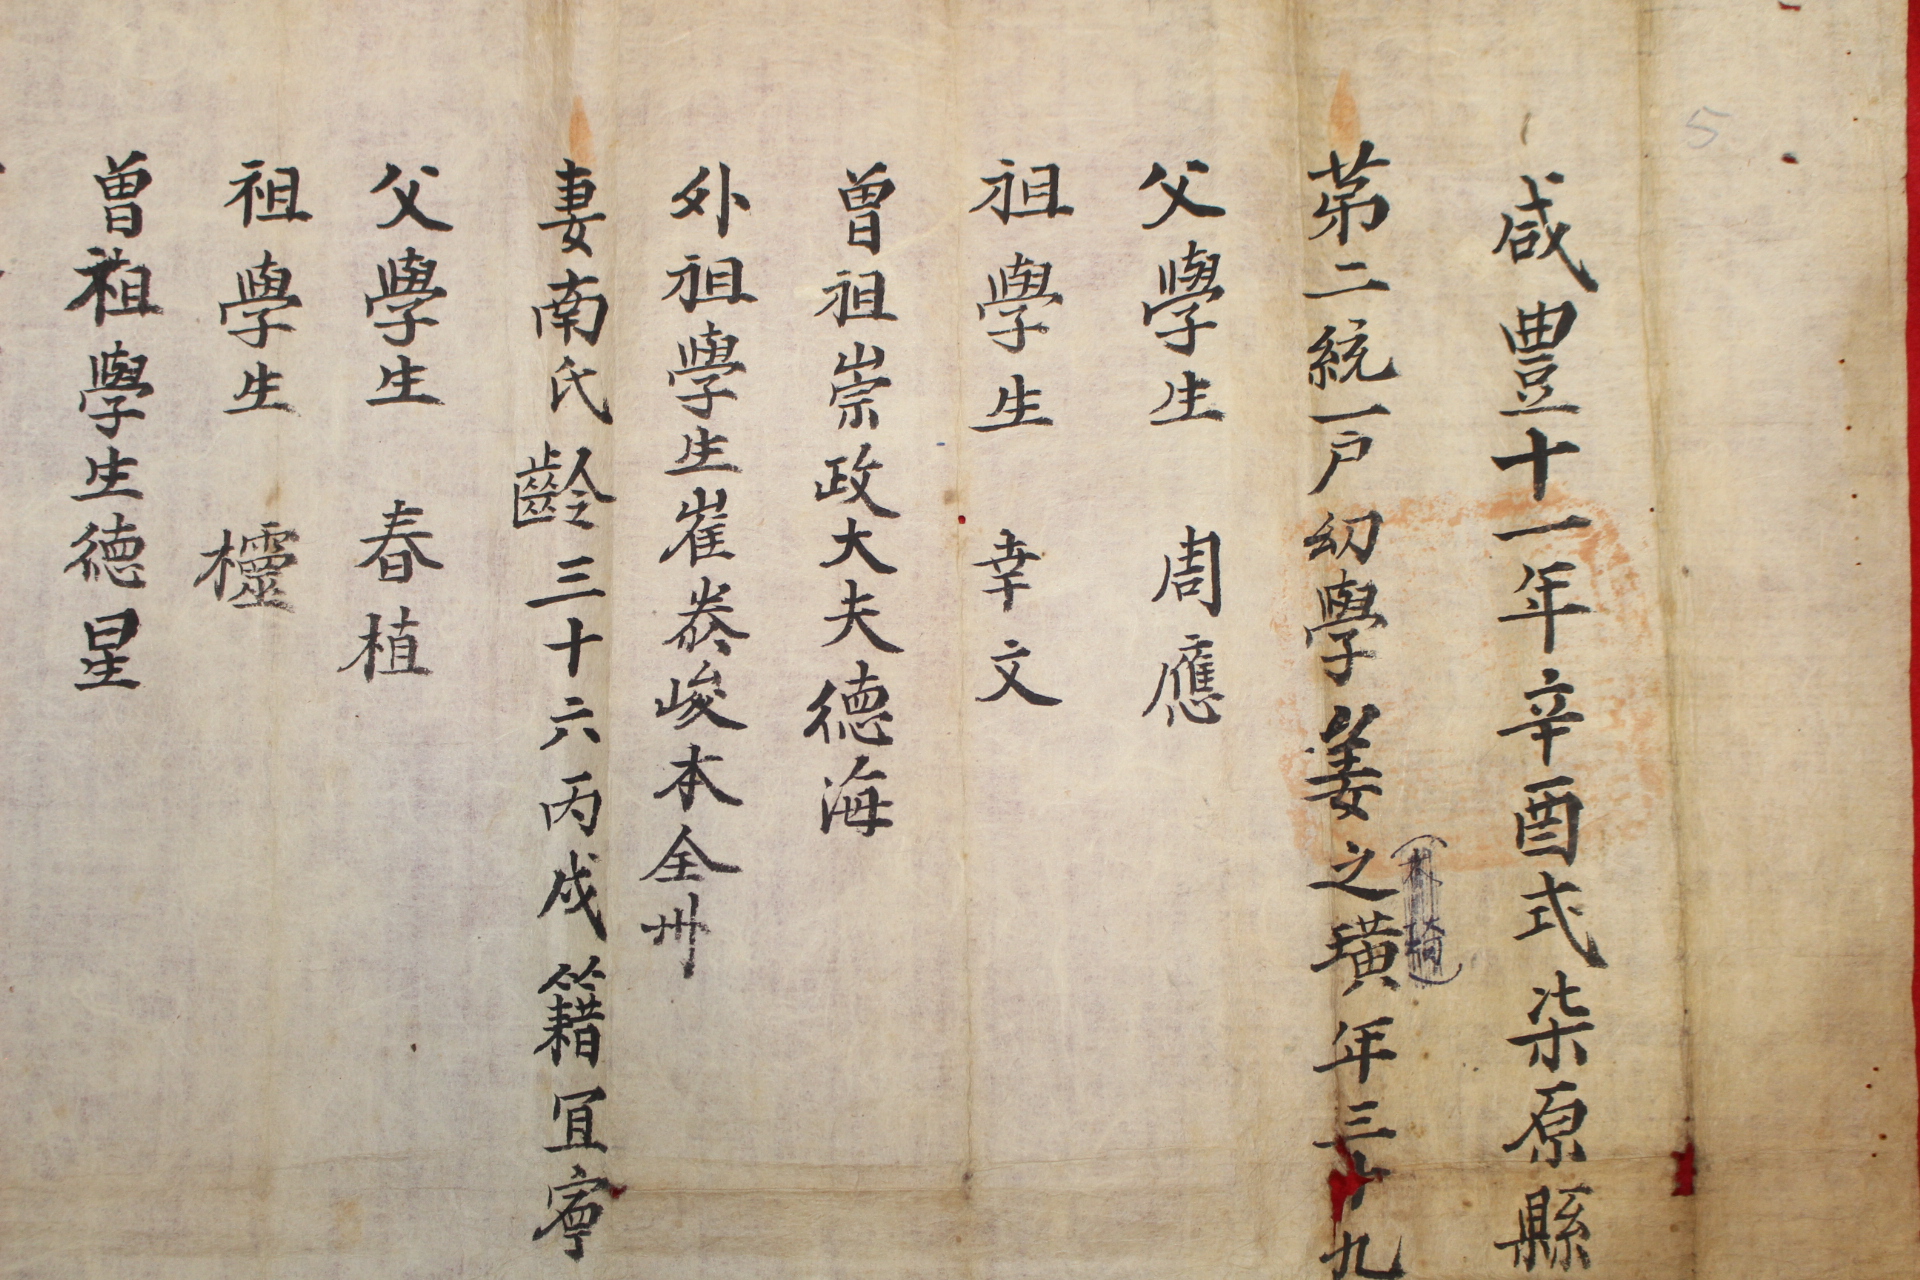 咸豊十一年辛酉式柒原縣
第二統一戶幼學姜之璜年三十九
父學生 周應
祖學生 幸文
曽祖崇政大夫德海
外祖學生崔泰峻本全州
妻南氏齡三十六丙戌籍宜寧
父學生 春植
祖學生 櫺
曽祖學生德星
5